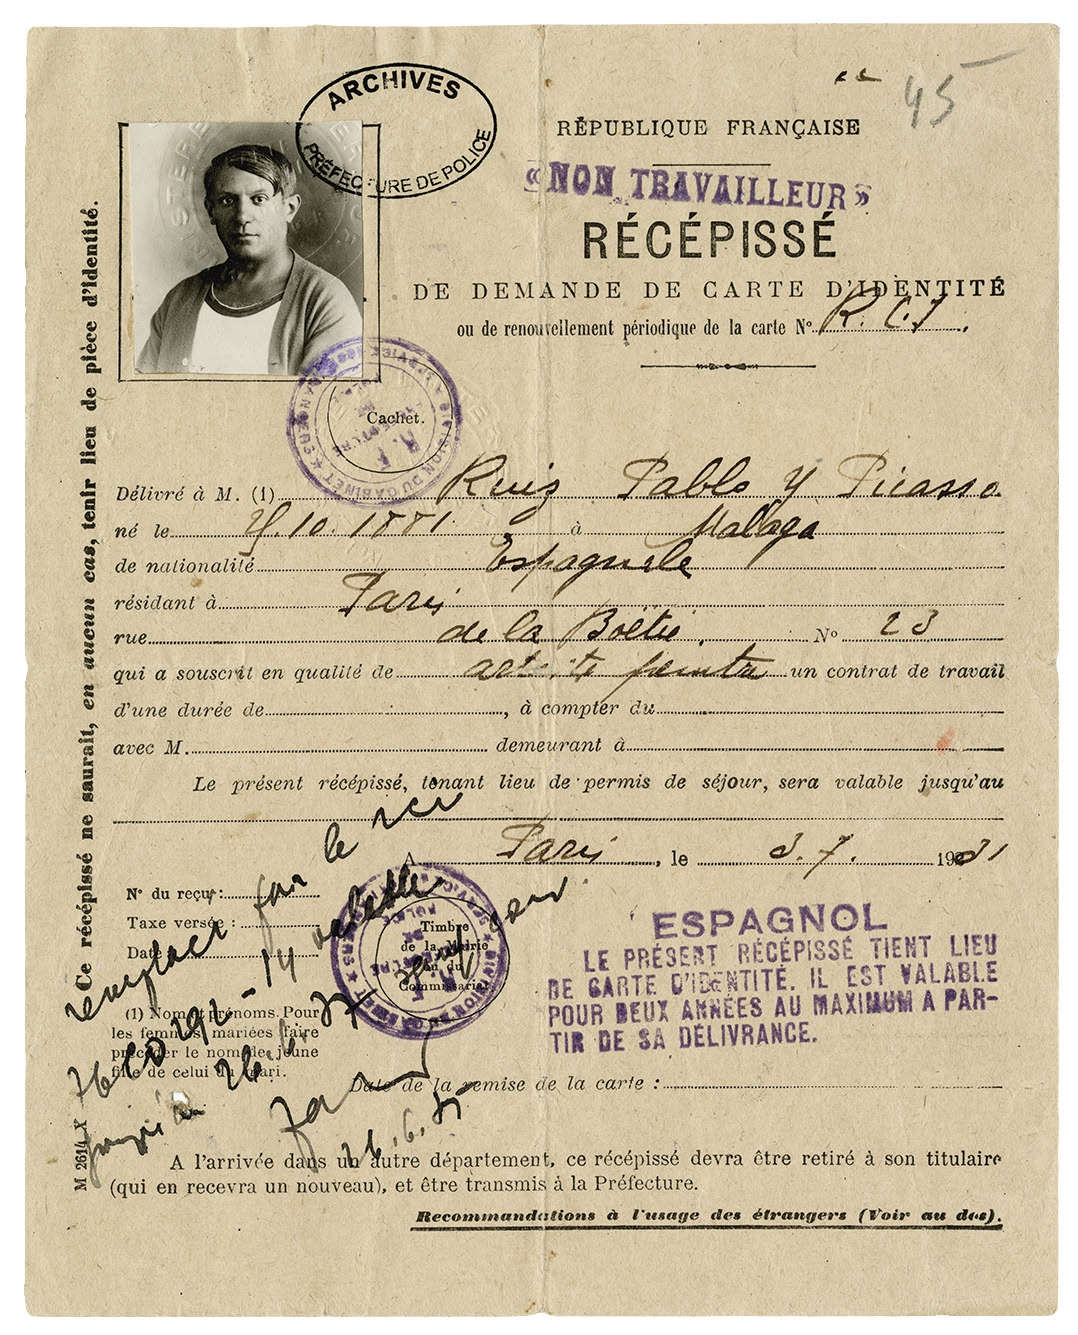 45
ARCHIVES
PRÉFECTURE DE POLICE
RÉPUBLIQUE FRANÇAISE
«NON TRAVAILLEUR»
RÉCÉPISSÉ
DE DEMANDE DE CARTE D'IDENTITÉ
ou de renouvellement périodique de la carte No R.C.J.
Ce récépissé ne saurait, en aucun cas, tenir lieu de pièce d'identité.
Cachet.
Délivré à M. (1) Ruiz Pablo y Picasso
né le 25.10.1881. à Malaga
de nationalité Espagnole
résidant à Paris
rue de la Boëtie. No 23
qui a souscrit en qualité de artiste peintre un contrat de travail
d'une durée de , à compter du
avec M. demeurant à
Le présent récépissé, tenant lieu de permis de séjour, sera valable jusqu'au
A Paris , le 3.7. 1931
No du reçu :
Taxe versée :
Date
remplacé par le
Timbre
de la Mairie
ou du
Commissariat
ESPAGNOL
LE PRÉSENT RÉCÉPISSÉ TIENT LIEU
DE CARTE D'IDENTITÉ. IL EST VALABLE
POUR DEUX ANNÉES AU MAXIMUM A PAR-
TIR DE SA DÉLIVRANCE.
(1) Nom et prénoms. Pour
les femmes mariées faire
précéder le nom de jeune
fille de celui du mari.
Date de la remise de la carte :
26.6.35
M 2614 X
A l'arrivée dans un autre département, ce récépissé devra être retiré à son titulaire
(qui en recevra un nouveau), et être transmis à la Préfecture.
Recommandations à l'usage des étrangers (Voir au dos).